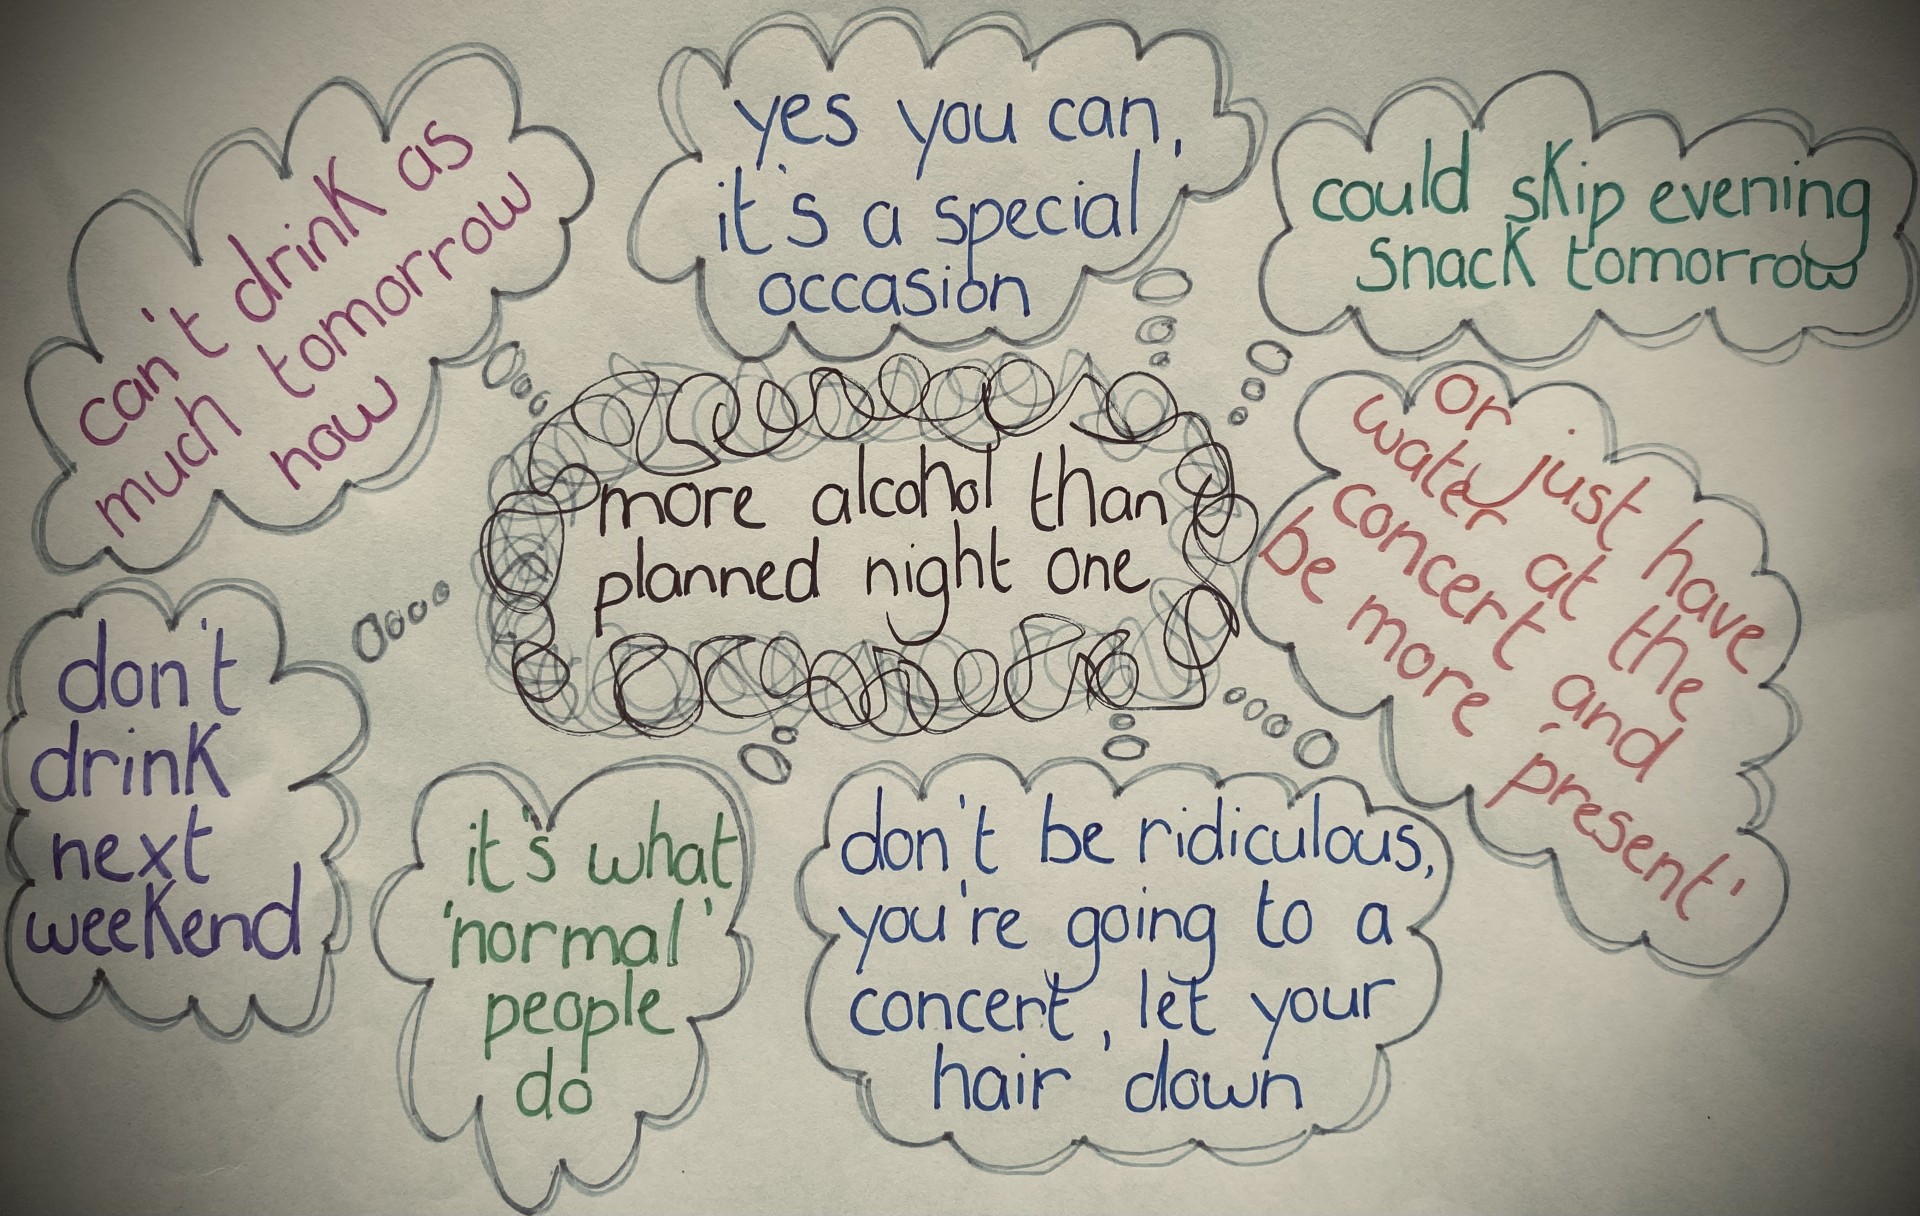 can't drink as
much tomorrow
now
yes you can,
it's a special
occasion
could skip evening
snack tomorrow
more alcohol than
planned night one
or just have
water at the
concert and
be more 'present'
don't
drink
next
weekend
it's what
'normal'
people
do
don't be ridiculous,
you're going to a
concert, let your
hair down